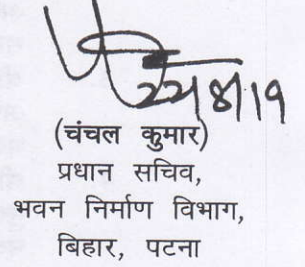 (चंचल कुमार)
प्रधान सचिव,
भवन निर्माण विभाग,
बिहार, पटना